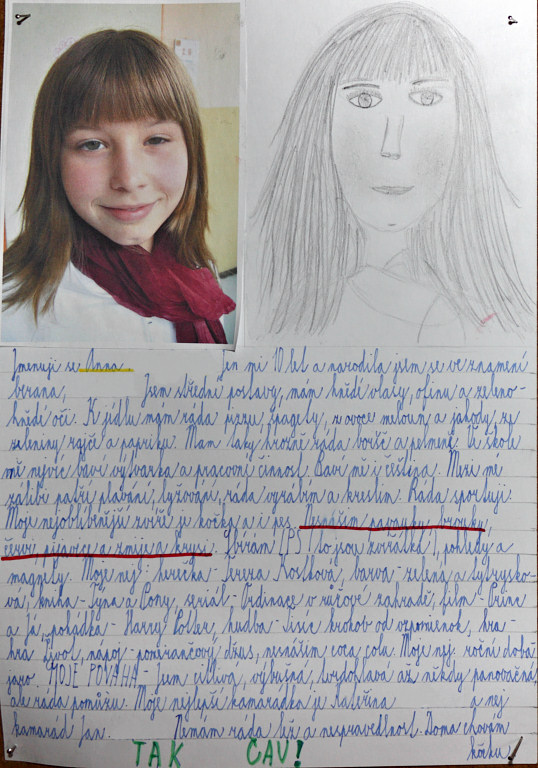 Jmenuji se Anna Je mi 10 let a narodila jsem se ve znamení
berana, Jsem střední postavy, mám hnědé vlasy, ofinu a zeleno-
hnědé oči. K jídlu mám ráda pizzu, špagety, z ovoce meloun a jahody, ze
zeleniny rajče a papriku. Mám taky hrozně ráda boršč a pelmeně. Ve škole
mě nejvíc baví výtvarka a pracovní činnost. Baví mě i čeština. Mezi mé
záliby patří plavání, lyžování, ráda vyrábím a kreslím. Ráda sportuji.
Moje nejoblíbenější zvíře je kočka a i pes. Nesnáším pavouky, brouky,
červi, pijavice a zmije a krysi. Sbírám LPS (to jsou zvířátka), pohledy a
magnety. Moje nej: herečka - Tereza Kostková, barva - zelená a tyrkyso-
vá, kniha - Týna a Pony, seriál - Ordinace v růžové zahradě, film - Princ
a Já, pohádka - Harry Potter, hudba - Tisíc kroků od vzpomínek, hra -
hra Život, nápoj - pomerančový džus, nesnáším coca colu. Moje nej. roční dobá
jaro. MOJE POVAHA - Jsem citlivá, výbušná, tvrdohlavá až někdy panovačná,
ale ráda pomůžu. Moje nejlepší kamarádka je Kateřina a nej
kamarád Jan. Nemám ráda lež a nespravedlnost. Doma chovám
kočku
TAK ČAV!